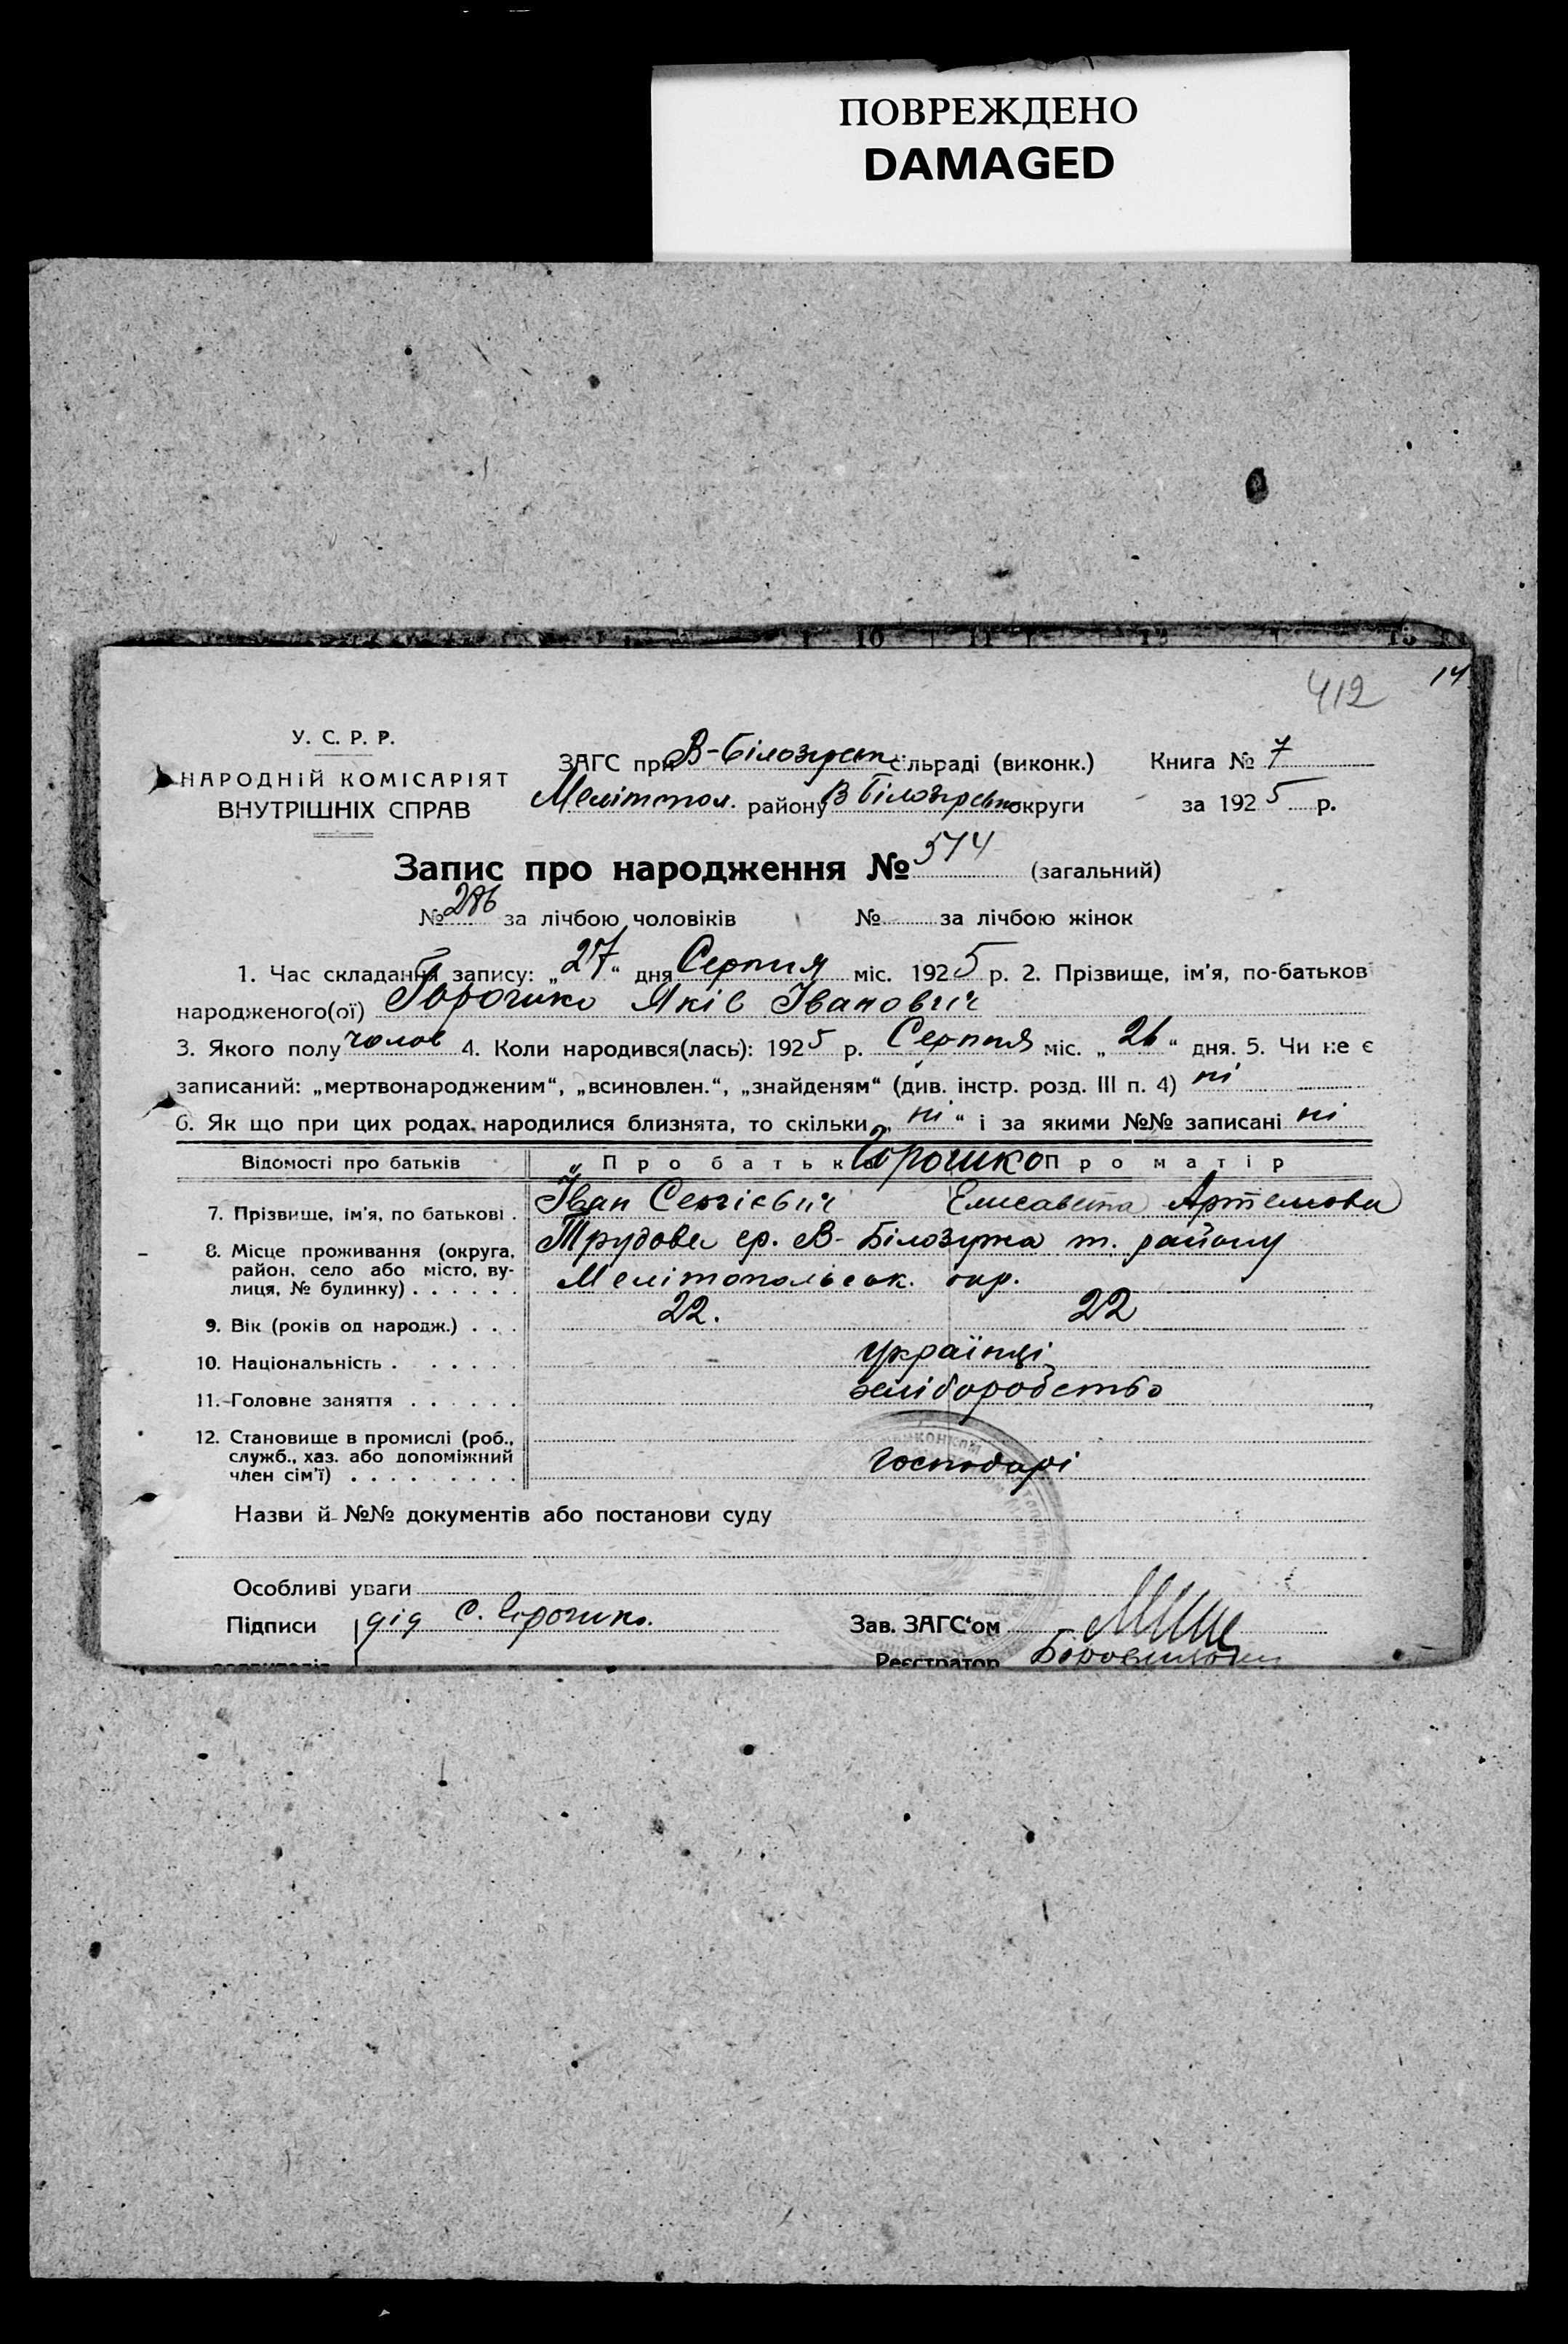 ПОВРЕЖДЕНО
DAMAGED
10 11 12 13
412 14
У. С. Р. Р.
НАРОДНІЙ КОМІСАРІЯТ
ВНУТРІШНІХ СПРАВ
ЗАГС при В-Білозірськ сільраді (виконк.) Книга № 7
Мелітопол. району В Білозірськ округи за 1925 р.
Запис про народження № 514 (загальний)
№ 286 за лічбою чоловіків № за лічбою жінок
1. Час складання запису: „27“ дня Серпня міс. 1925 р. 2. Прізвище, ім'я, по-батьков
народженого(ої) Горошко Яків Іванович
3. Якого полу чолов 4. Коли народився(лась): 1925 р. Серпня міс. „26“ дня. 5. Чи не є
записаний: „мертвонародженим“, „всиновлен.“, „знайденям“ (див. інстр. розд. III п. 4) ні
6. Як що при цих родах народилися близнята, то скільки „ні“ і за якими №№ записані ні
Відомості про батьків Про батька Горошко Про матір
7. Прізвище, ім'я, по батькові . Іван Сергієвич Елисавета Артемовна
8. Місце проживання (округа, район, село або місто, вулиця, № будинку) . . . . . . Трудова ср. В-Білозірка т. району
Мелітопольськ. окр.
9. Вік (років од народж.) . . . 22. 22
10. Національність . . . . . . . українці
11. Головне заняття . . . . . . хліборобство
12. Становище в промислі (роб.,
служб., хаз. або допоміжний
член сім'ї) . . . . . . . . . господарі
Назви й №№ документів або постанови суду
Особливі уваги
Підписи дід С. Горошко. Зав. ЗАГС'ом
Реєстратор